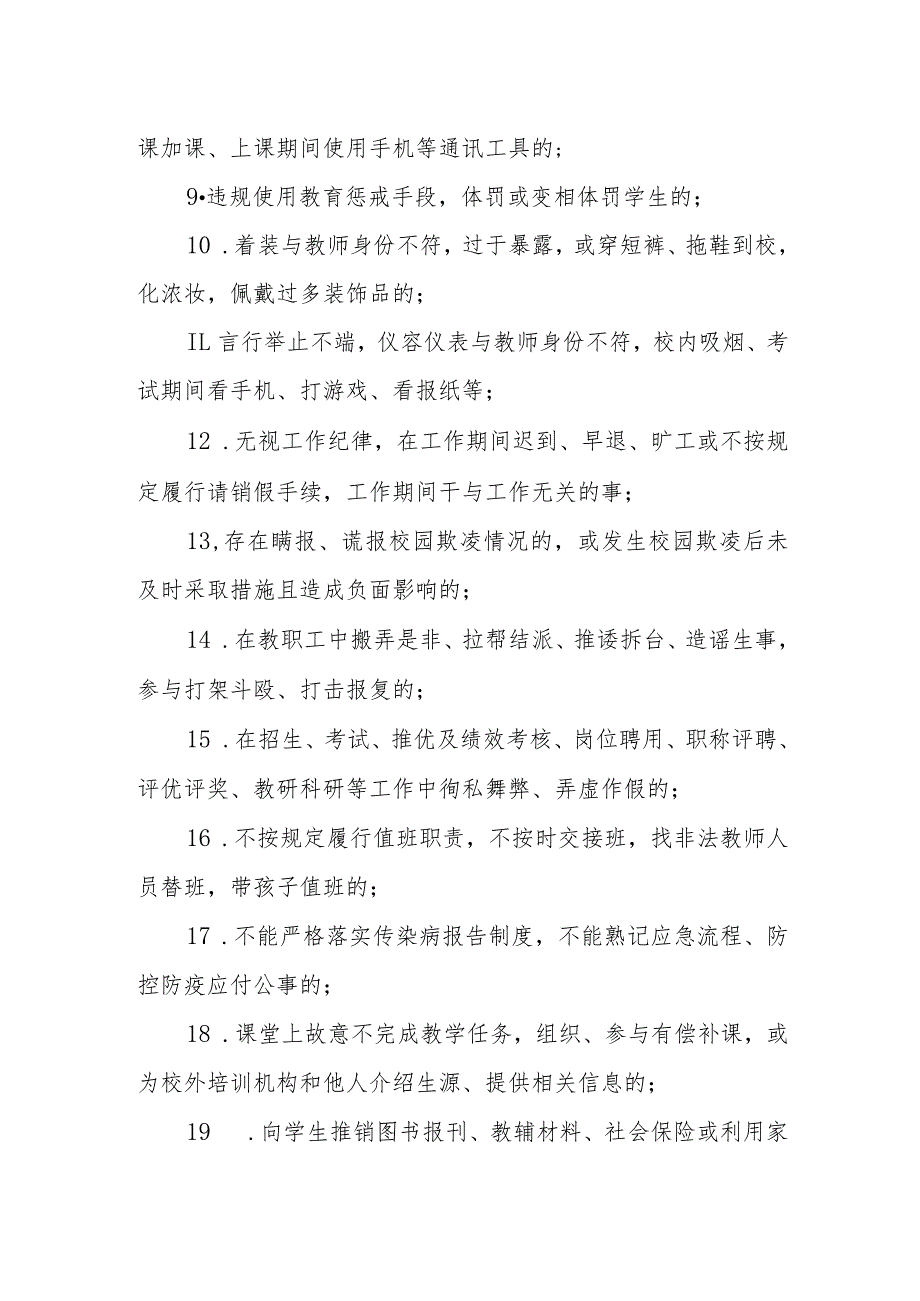 课加课、上课期间使用手机等通讯工具的;
9•违规使用教育惩戒手段，体罚或变相体罚学生的;
10 .着装与教师身份不符，过于暴露，或穿短裤、拖鞋到校，
化浓妆，佩戴过多装饰品的;
IL言行举止不端，仪容仪表与教师身份不符，校内吸烟、考
试期间看手机、打游戏、看报纸等;
12 .无视工作纪律，在工作期间迟到、早退、旷工或不按规
定履行请销假手续，工作期间干与工作无关的事;
13,存在瞒报、谎报校园欺凌情况的，或发生校园欺凌后未
及时采取措施且造成负面影响的;
14 .在教职工中搬弄是非、拉帮结派、推诿拆台、造谣生事，
参与打架斗殴、打击报复的;
15 .在招生、考试、推优及绩效考核、岗位聘用、职称评聘、
评优评奖、教研科研等工作中徇私舞弊、弄虚作假的;
16 .不按规定履行值班职责，不按时交接班，找非法教师人
员替班，带孩子值班的;
17 .不能严格落实传染病报告制度，不能熟记应急流程、防
控防疫应付公事的;
18 .课堂上故意不完成教学任务，组织、参与有偿补课，或
为校外培训机构和他人介绍生源、提供相关信息的;
19 .向学生推销图书报刊、教辅材料、社会保险或利用家